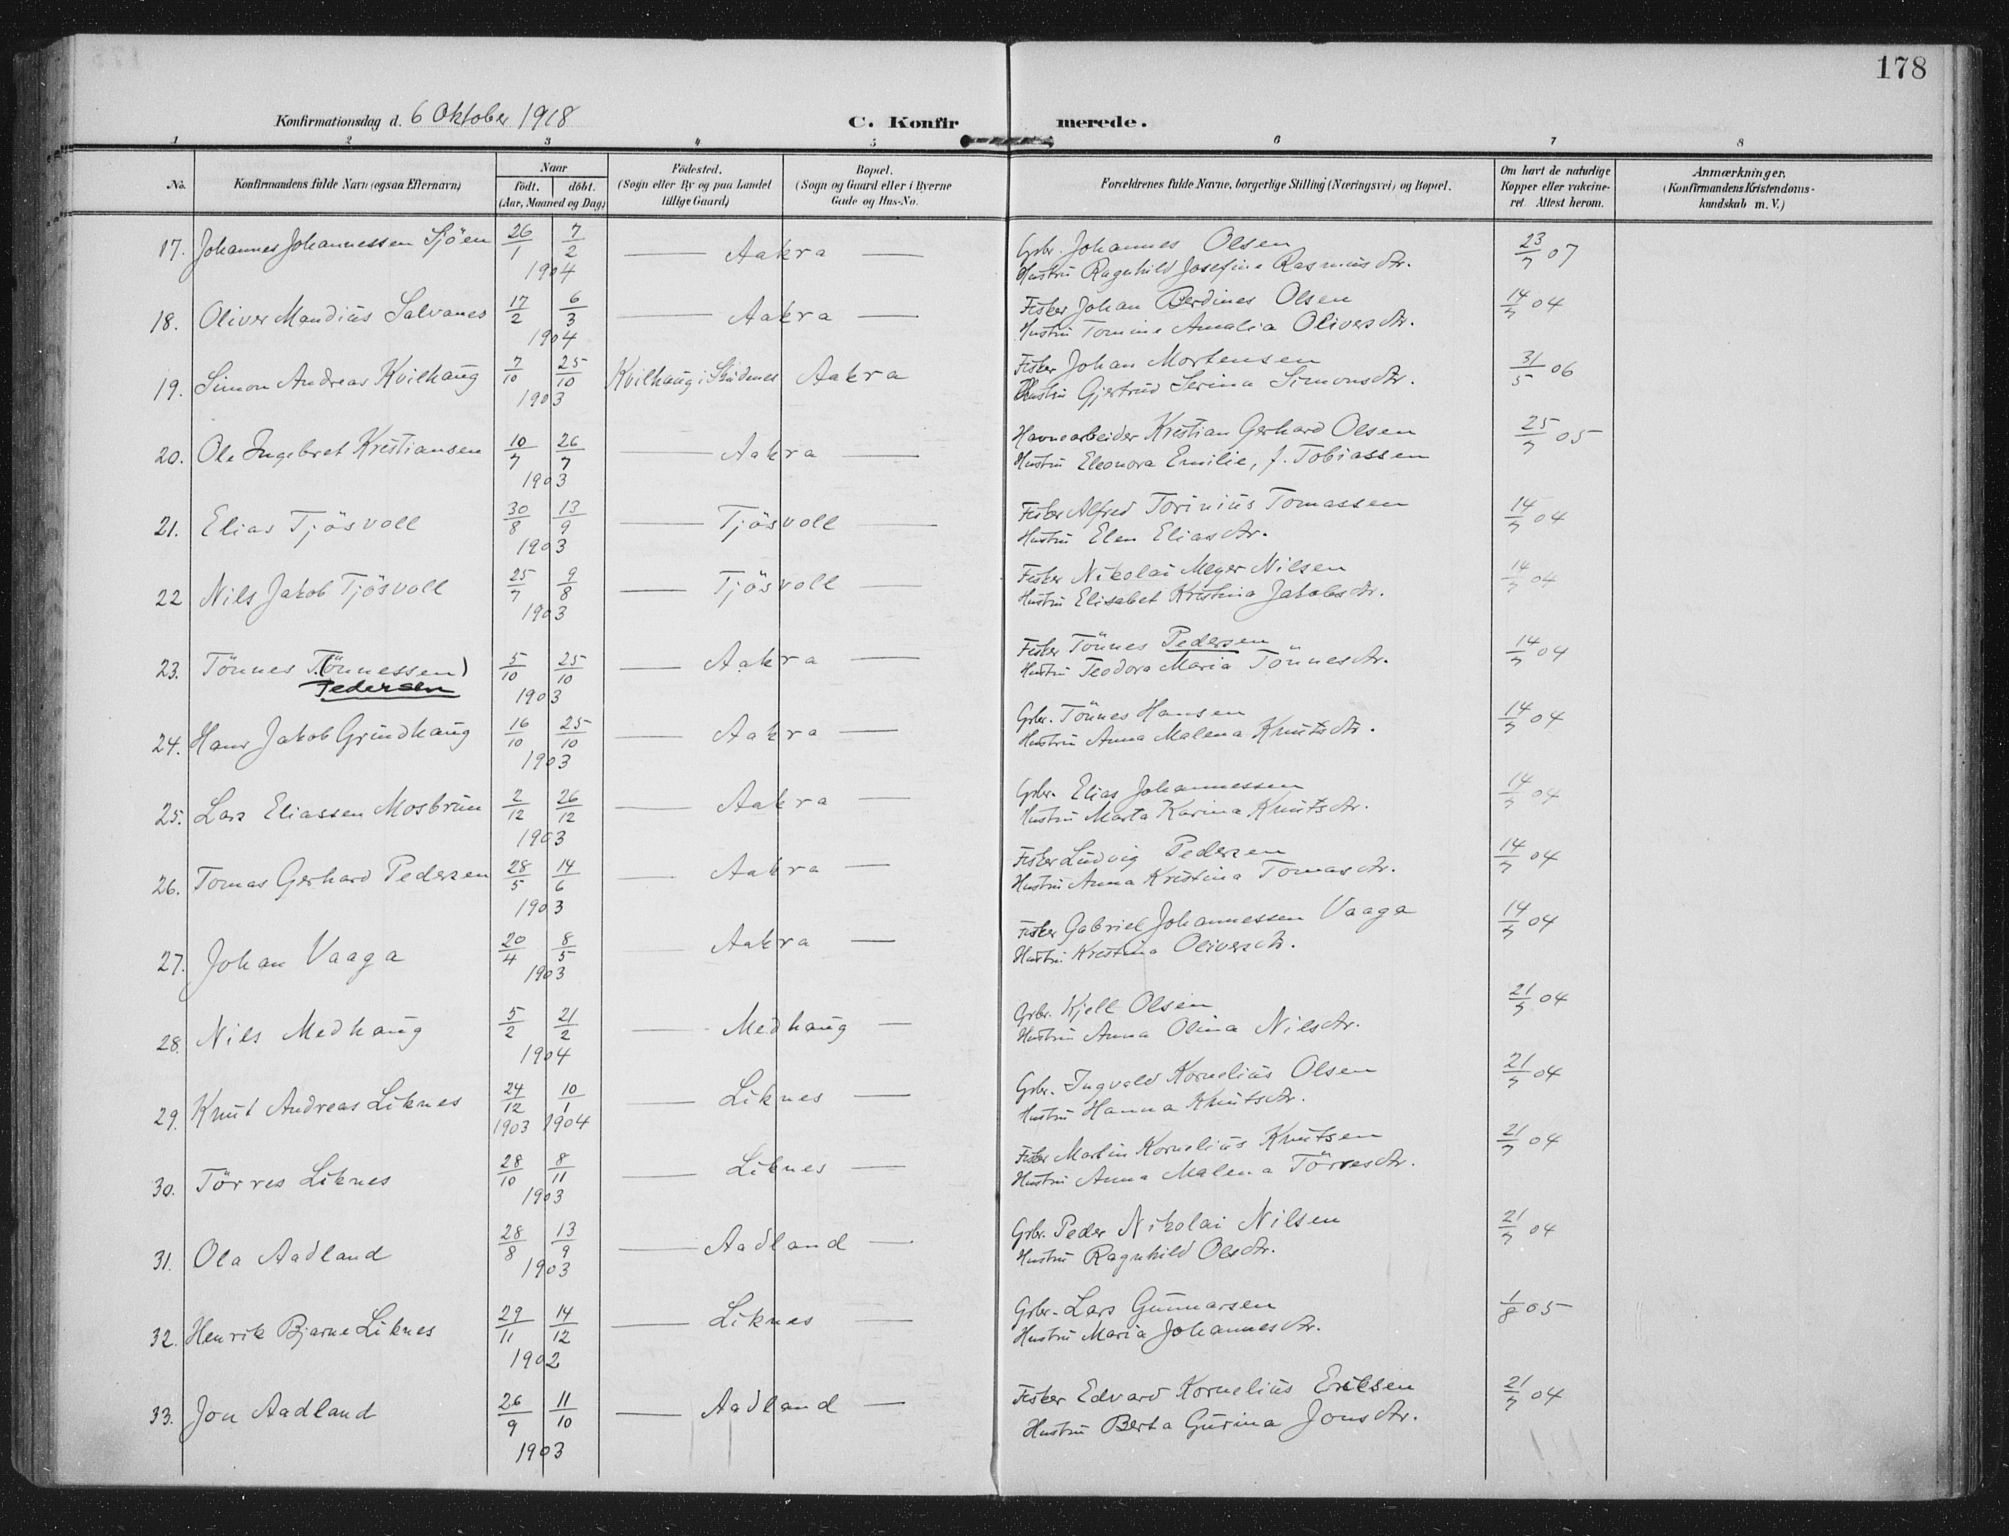 178
Konfirmationsdag d. 6 Oktober 1918
C. Konfirmerede.
1 2 3 4 5 6 7 8
No. Konfirmandens fulde Navn (ogsaa Efternavn) Naar født. døbt. (Aar, Maaned og Dag) Fødested. (Sogn eller By og paa Landet tillige Gaard) Bopæl. (Sogn og Gaard eller i Byerne Gade og Hus-No. Forældrenes fulde Navne, borgerlige Stilling (Næringsvei) og Bopæl. Om havt de naturlige Kopper eller vakcineret. Attest herom. Anmærkninger. (Konfirmandens Kristendomskundskab m. V.)
17. Johannes Johannessen Sjöen 26/1 7/2 1904 — Aakra — Grbr. Johannes Olsen 23/7 07
Hustru Ragnhild Josefine Rasmusdtr.
18. Oliver Mandius Salvanes 17/2 6/3 1904 — Aakra — Fisker Johan Berdines Olsen 14/7 04
Hustru Tomine Amalia Oliversdtr.
19. Simon Andreas Kvilhaug 7/10 25/10 1903 Kvilhaug i Skudenes Aakra Fisker Johan Mortensen 31/5 06
Hustru Gjertrud Serina Simonsdtr.
20. Ole Ingebret Kristiansen 10/7 26/7 1903 — Aakra — Havnearbeider Kristian Gerhard Olsen 25/7 05
Hustru Eleonora Emilie, f. Tobiassen
21. Elias Tjösvoll 30/8 13/9 1903 — Tjösvoll — Fisker Alfred Torinius Tomassen 14/7 04
Hustru Elen Eliasdtr.
22 Nils Jakob Tjösvoll 25/7 9/8 1903 — Tjösvoll — Fisker Nikolai Meyer Nilsen 14/7 04
Hustru Elisabet Kristina Jakobsdtr.
23. Tönnes (Tönnessen) 5/10 25/10 1903 — Aakra — Fisker Tönnes Pedersen 14/7 04
Pedersen Hustru Teodora Maria Tönnesdtr.
24. Hans Jakob Grindhaug 16/10 25/10 1903 — Aakra — Grbr. Tönnes Hansen 14/7 04
Hustru Anna Malena Knutsdtr.
25. Lars Eliassen Mosbrun 2/12 26/12 1903 — Aakra — Grbr. Elias Johannessen 14/7 04
Hustru Marta Karina Knutsdtr.
26. Tomas Gerhard Pedersen 28/5 14/6 1903 — Aakra — Fisker Ludvig Pedersen 14/7 04
Hustru Anna Kristina Tomasdtr.
27. Johan Vaaga 20/4 8/5 1903 — Aakra — Fisker Gabriel Johannessen Vaaga 14/7 04
Hustru Kristina Oliversdtr.
28. Nils Medhaug 5/2 21/2 1904 — Medhaug — Grbr. Kjell Olsen 21/7 04
Hustru Anna Olina Nilsdtr.
29. Knut Andreas Liknes 24/12 1903 10/1 1904 — Liknes — Grbr. Ingvald Kornelius Olsen 21/7 04
Hustru Hanna Knutsdtr.
30. Törres Liknes 28/10 8/11 1903 — Liknes — Fisker Martin Kornelius Knutsen 21/7 04
Hustru Anna Malena Törresdtr.
31. Ola Aadland 28/8 13/9 1903 — Aadland — Grbr. Peder Nikolai Nilsen 21/7 04
Hustru Ragnhild Olsdtr.
32. Henrik Bjarne Liknes 29/11 14/12 1902 — Liknes — Grbr. Lars Gunnarsen 1/8 05
Hustru Maria Johannesdtr.
33. Jon Aadland 26/9 11/10 1903 — Aadland — Fisker Edvard Kornelius Eriksen 21/7 04
Hustru Berta Gurina Jonsdtr.